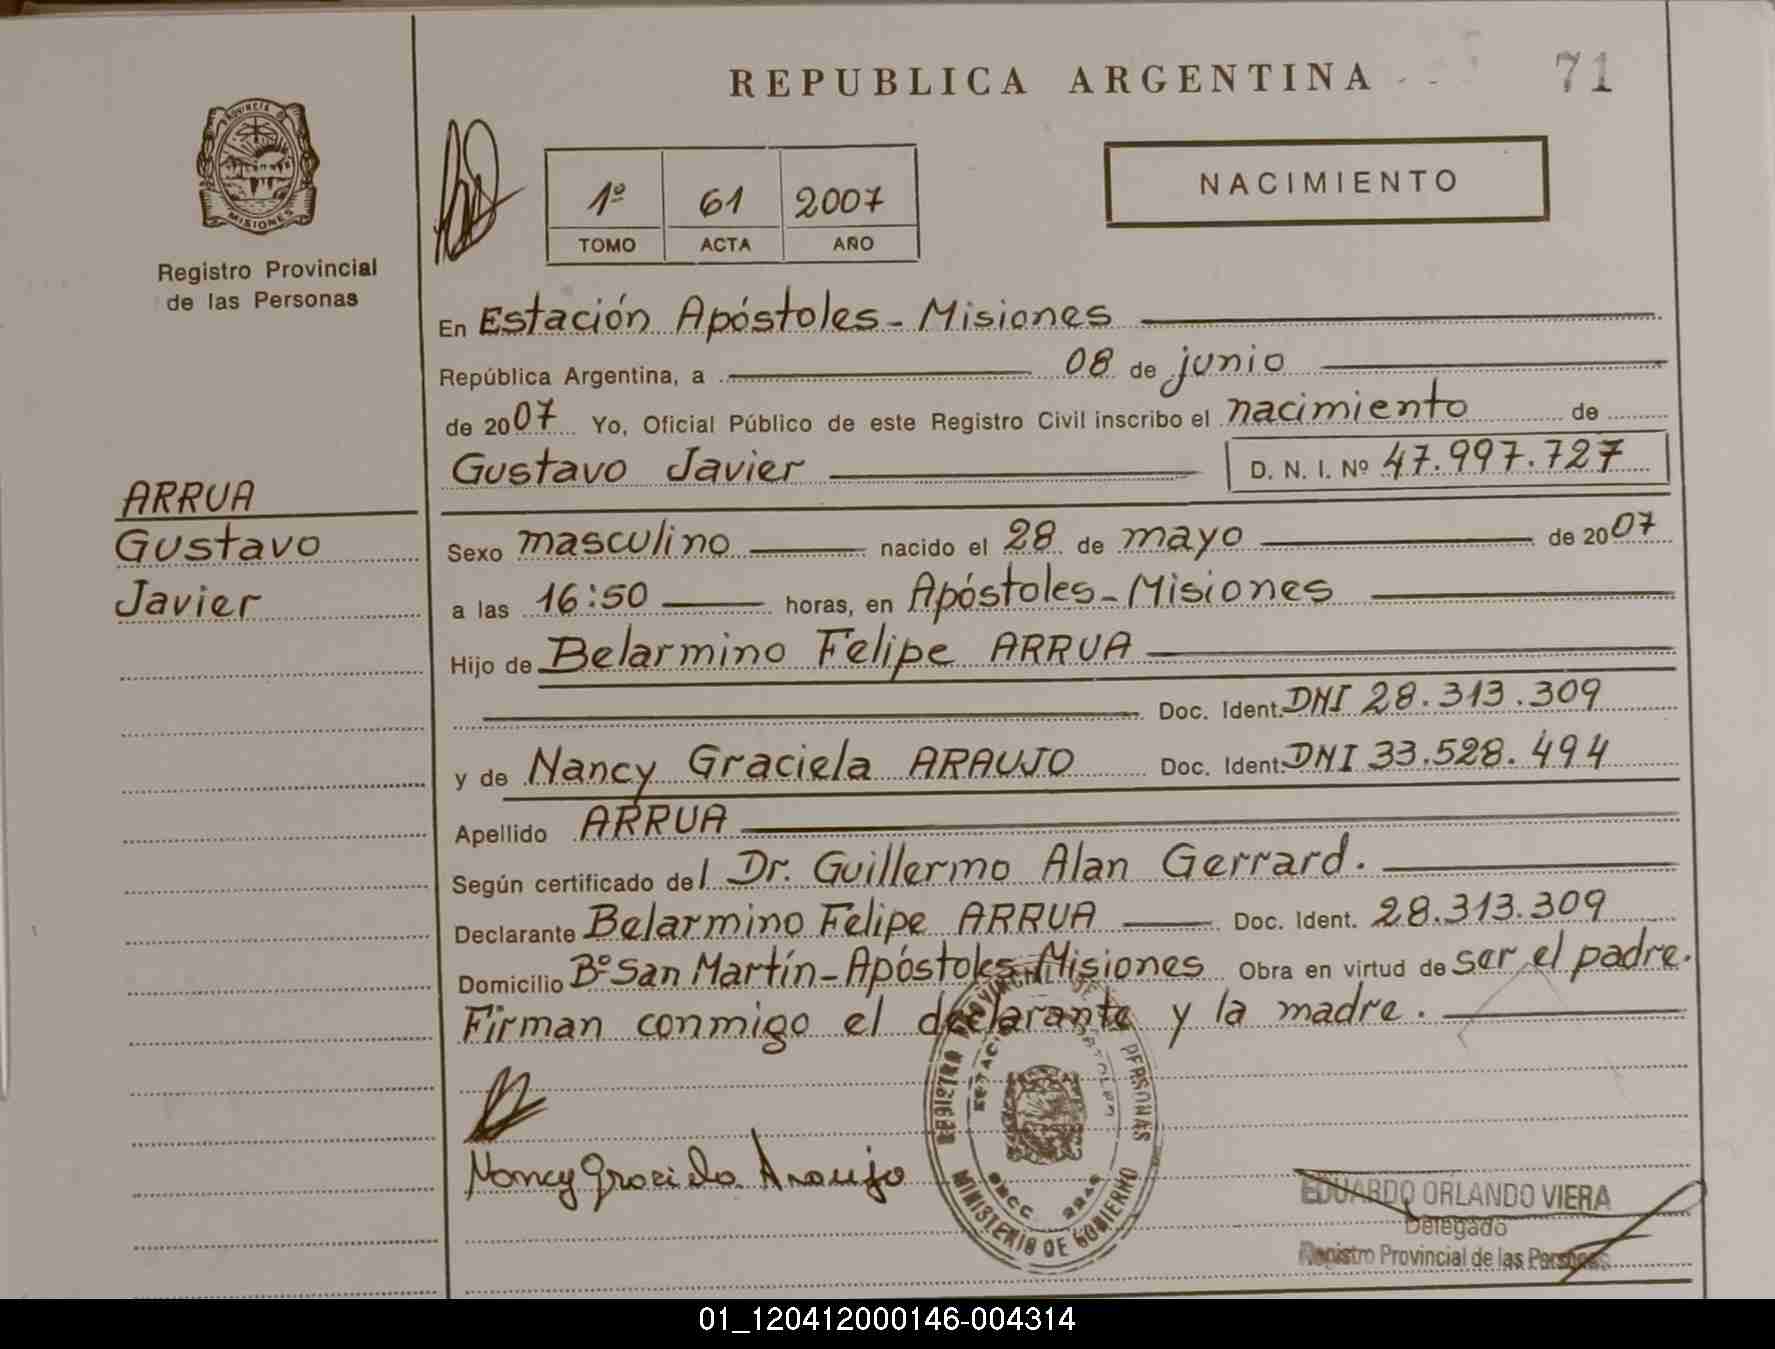 REPUBLICA ARGENTINA
71
PROVINCIA DE
MISIONES
Registro Provincial
de las Personas
1º 61 2007
TOMO ACTA AÑO
NACIMIENTO
En Estación Apóstoles - Misiones
República Argentina, a 08 de junio
de 2007 Yo, Oficial Público de este Registro Civil inscribo el nacimiento de
Gustavo Javier D. N. I. Nº 47.997.727
ARRUA
Gustavo
Javier
Sexo masculino nacido el 28 de mayo de 2007
a las 16:50 horas, en Apóstoles - Misiones
Hijo de Belarmino Felipe ARRUA
Doc. Ident. DNI 28.313.309
y de Nancy Graciela ARAUJO Doc. Ident. DNI 33.528.494
Apellido ARRUA
Según certificado del Dr. Guillermo Alan Gerrard.
Declarante Belarmino Felipe ARRUA Doc. Ident. 28.313.309
Domicilio Bº San Martín - Apóstoles - Misiones Obra en virtud de ser el padre.
Firman conmigo el declarante y la madre.
Nancy Graciela Araujo
REGISTRO PROVINCIAL DE PERSONAS
MINISTERIO DE GOBIERNO
EDUARDO ORLANDO VIERA
Delegado
Registro Provincial de las Personas
01_120412000146-004314